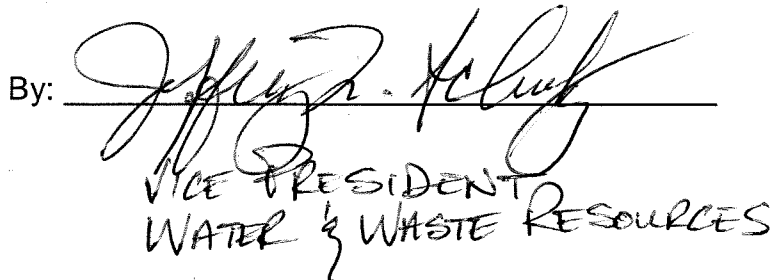 By: Jeffrey R.
VICE PRESIDENT
WATER & WASTE RESOURCES